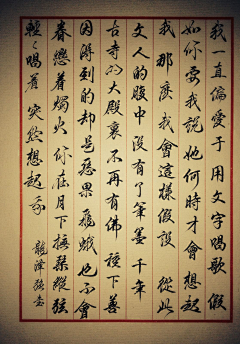 我一直偏愛于用文字唱歌 假
如你 我說 她何時才會想起
我 那麼我會這樣假設 從此
文人的腹中没有了筆墨 千年
古寺的大殿裏不再有佛 種下善
因得到的却是惡果 飛蛾也不會
眷戀着燭火 你在月下撫琴縱弦
輕〻唱着 突然想起我
龍澤